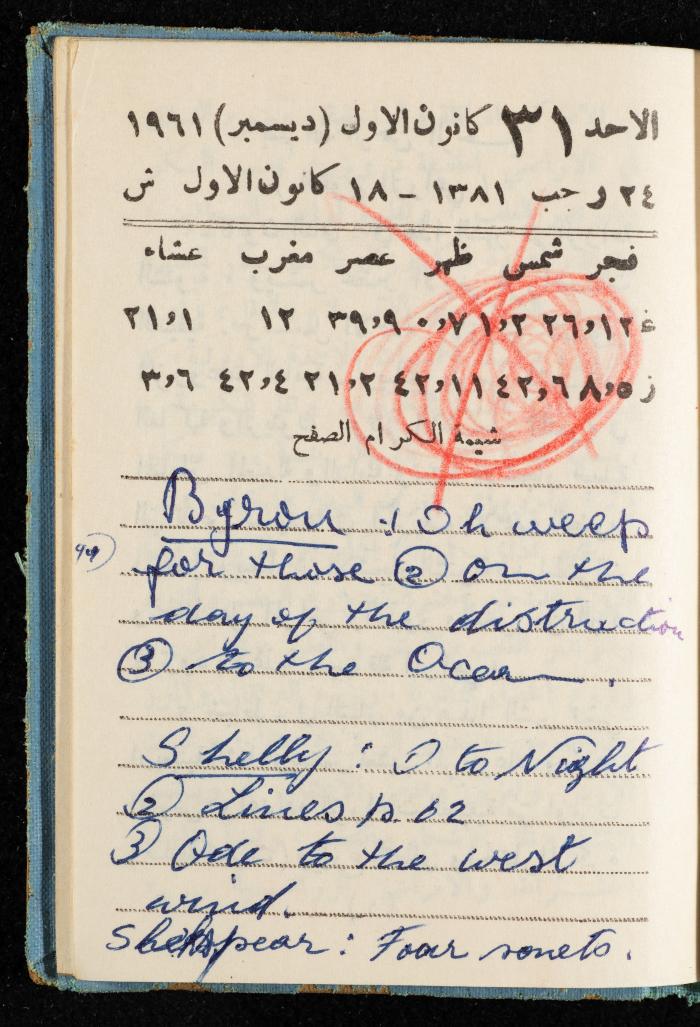 الاحد ٣١ كانون الاول (ديسمبر) ١٩٦١
٢٤ رجب ١٣٨١ - ١٨ كانون الاول ش
فجر شمس ظهر عصر مغرب عشاء
غ ١٢,٢٦ ٢,١ ٧,٠ ٩,٣٩ ١٢ ١,٢١
ز ٥,٨ ٦,٤٢ ١١,٤٢ ٢,٢١ ٤,٤٢ ٦,٣
شيمة الكرام الصفح
Byron : ① Oh weep
for those ② on the
day of the distruction
③ to the Ocean.
Shelly : ① to Night
② Lines p. 62
③ Ode to the west
wind.
Shekspear : Foar sonets.